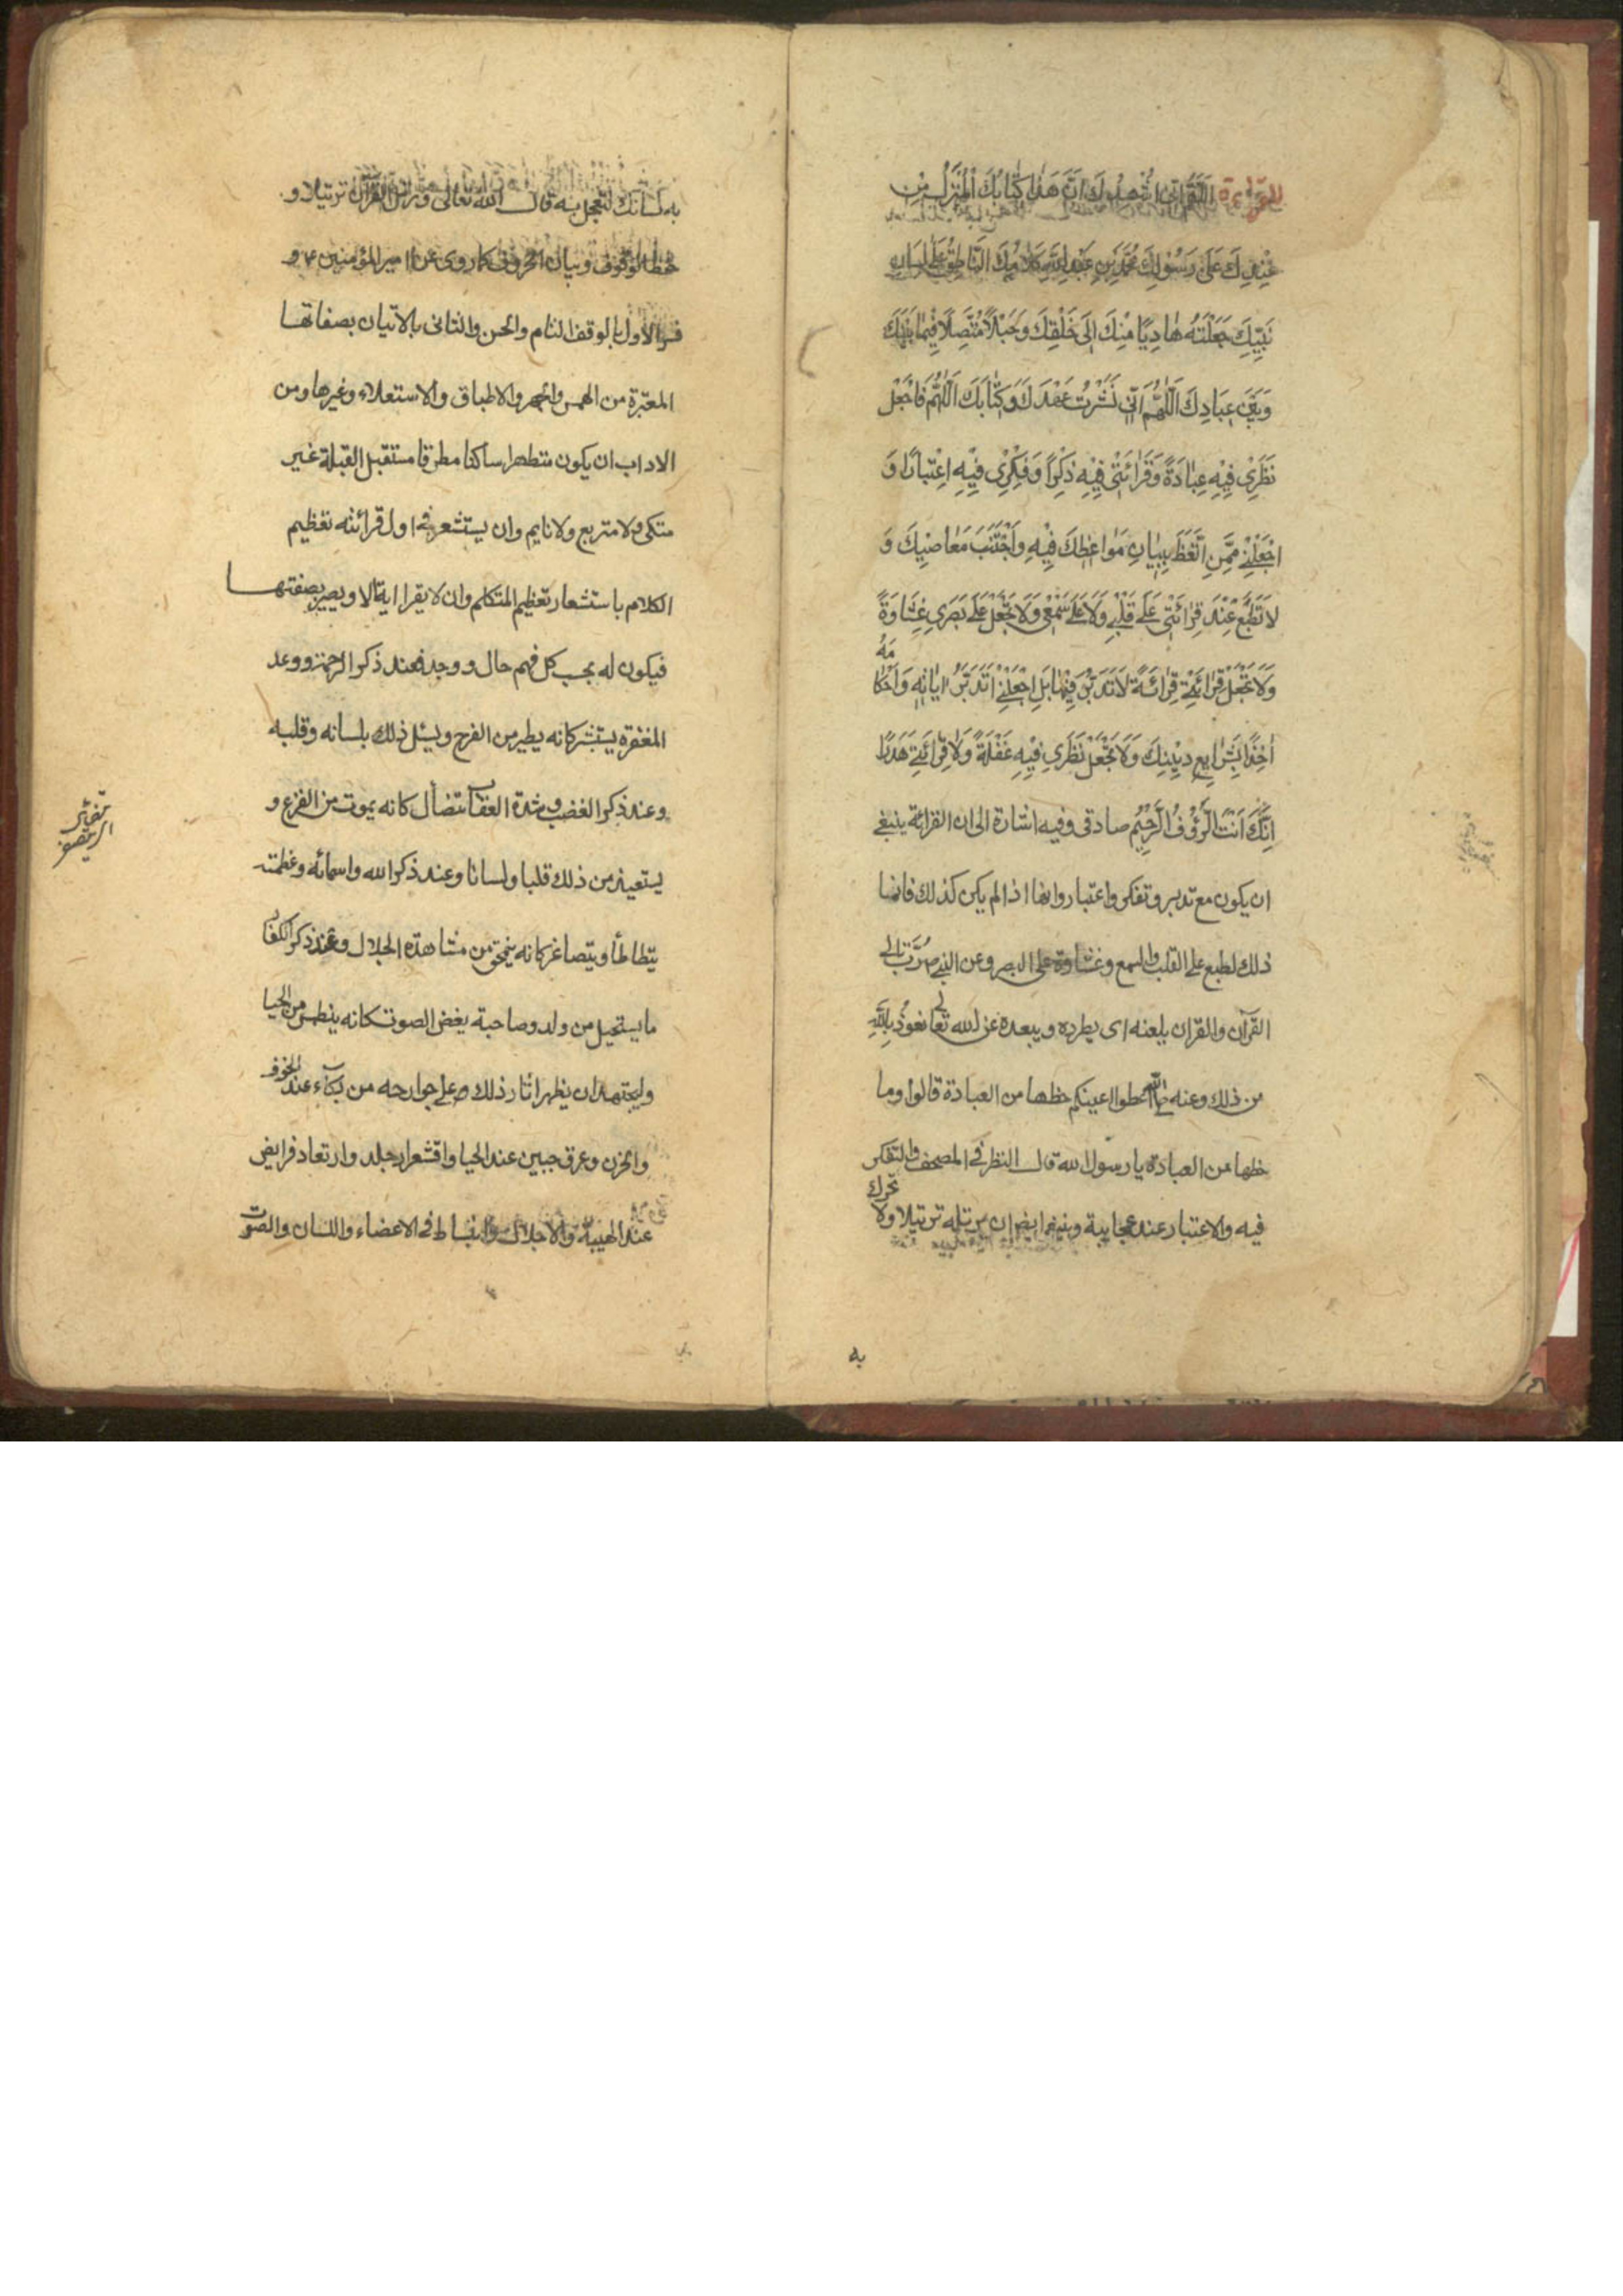 للقراءة اَللّٰهُمَّ اِنّي اَشْهَدُ اَنَّ هٰذا كِتابُكَ الْمُنْزَلُ مِنْ
عِنْدِكَ عَلىٰ رَسُوْلِكَ مُحَمَّدِ بْنِ عَبْدِ اللّٰهِ وَكَلامُكَ النّاطِقُ عَلىٰ لِسانِ
نَبِيِّكَ جَعَلْتَهُ هادِيًا مِنْكَ اِلىٰ خَلْقِكَ وَحَبْلًا مُتَّصِلًا فِيْما بَيْنَكَ
وَبَيْنَ عِبادِكَ اَللّٰهُمَّ اِنّي نَشَرْتُ عَهْدَكَ وَكِتابَكَ اَللّٰهُمَّ فَاجْعَلْ
نَظَرِيْ فِيْهِ عِبادَةً وَقَرائَتِيْ فِيْهِ ذِكْرًا وَفِكْرِيْ فِيْهِ اعْتِبارًا وَ
اجْعَلْنِيْ مِمَّنِ اتَّعَظَ بِبَيانِ مَواعِظِكَ فِيْهِ وَاجْتَنَبَ مَعاصِيْكَ وَ
لا تَطْبَعْ عِنْدَ قِرائَتِيْ عَلىٰ قَلْبِيْ وَلا عَلىٰ سَمْعِيْ وَلا تَجْعَلْ عَلىٰ بَصَرِيْ غِشاوَةً
وَلا تَجْعَلْ قِرائَتِيْ قِرائَةً لا تَدَبُّرَ فِيْها بَلِ اجْعَلْنِيْ اَتَدَبَّرُ اٰياتِهِ وَاَحْكامَهُ
اٰخِذًا بِشَرايِعِ دِيْنِكَ وَلا تَجْعَلْ نَظَرِيْ فِيْهِ غَفْلَةً وَلا قِرائَتِيْ هَدَرًا
اِنَّكَ اَنْتَ الرَّؤُفُ الرَّحِيْمُ صادقى وفيه اشارة الى ان القرائة ينبغي
ان يكون مع تدبر وتفكر واعتبار وانها اذا لم يكن كذلك فانما
ذلك لطبع على القلب والسمع وغشاوة على البصر وعن النبي ص رُبَّ تالي
القرآن والقران يلعنه اى يطرده ويبعده عن الله تعالى نعوذ بالله
من ذلك وعنه اعطوا اعينكم حظها من العبادة قالوا وما
حظها من العبادة يا رسول الله قال النظر في المصحف والتفكر
فيه والاعتبار عند عجايبه وينبغي ايضا ان يرتله ترتيلا ولا تحرك
به
به لسانك لتعجل به قال الله تعالى ورتل القرآن ترتيلا و
حفظ الوقوف وبيان الحروف كما روى عن امير المؤمنين ع و
فسر الأول بالوقف التام والحسن والثانى بالاتيان بصفاتها
المعتبرة من الهمس والجهر والاطباق والاستعلاء وغيرها ومن
الاداب ان يكون متطهرا ساكنا مطرقا مستقبل القبلة غير
متكى ولا متربع ولا نايم وان يستشعر في اول قرائته تعظيم
الكلام باستشعار تعظيم المتكلم وان لا يقرا اية الا ويصير بصفتها
فيكون له بحسب كل فهم حال ووجد فعند ذكر الرحمة ووعد
المغفرة يستبشر كانه يطير من الفرح ويسئل ذلك بلسانه وقلبه
وعند ذكر الغضب وشدة العقاب يتضأل كانه يموت من الفزع و
يستعيذ من ذلك قلبا ولسانا وعند ذكر الله واسمائه وعظمته
يتطاطأ ويتصاغر كانه ينمحق من مشاهدة الجلال وعند ذكر الكفار
ما يستحيل من ولد وصاحبة يغض الصوت كانه ينطمس من الحيا
وليجتهد ان يظهر اثار ذلك على جوارحه من بكاء عند الخوف
والحزن وعرق جبين عند الحيا واقشعرار جلد وارتعاد فرايض
عند الهيبة والاجلال وانبساط في الاعضاء واللسان والصوت